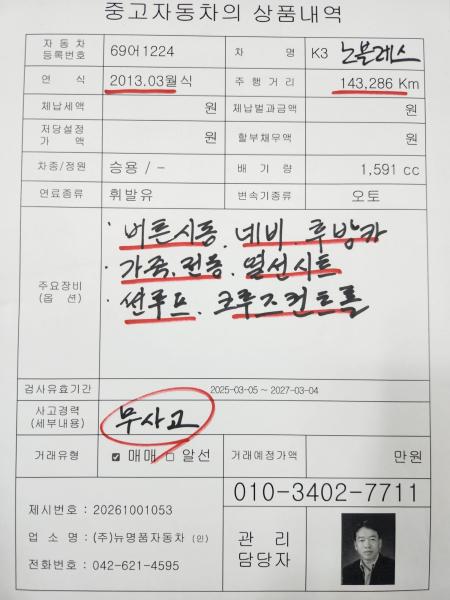 중고자동차의 상품내역
자동차등록번호 69어1224 차 명 K3 노블레스
연 식 2013.03월식 주행거리 143,286 Km
체납세액 원 체납벌과금액 원
저당설정가액 원 할부채무액 원
차종/정원 승용 / - 배 기 량 1,591 cc
연료종류 휘발유 변속기종류 오토
주요장비 (옵 션)
· 버튼시동. 네비. 후방카
· 가죽. 전동. 열선시트
· 썬루프. 크루즈컨트롤
검사유효기간 2025-03-05 ~ 2027-03-04
사고경력 (세부내용) 무사고
거래유형 ☑ 매매 □ 알선 거래예정가액 만원
010-3402-7711
제시번호 : 20261001053
업 소 명 : (주)뉴명품자동차 (인)
전화번호 : 042-621-4595
관 리
담당자